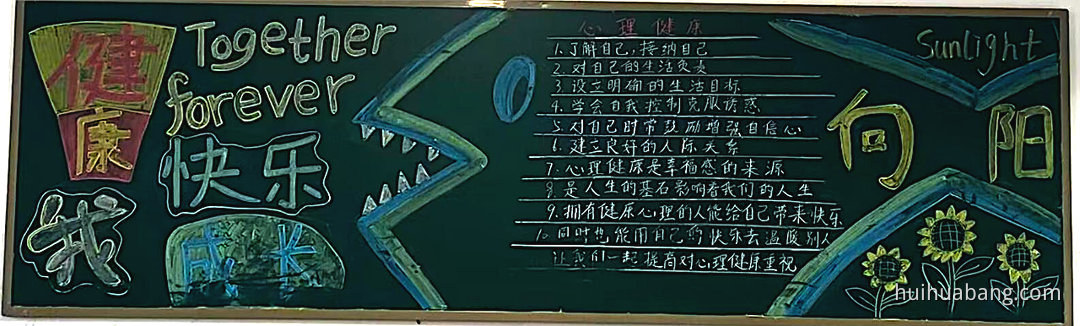 健康
Together
forever
快乐
我
成长
心理健康
1.了解自己,接纳自己
2.对自己的生活负责
3.设立明确的生活目标
4.学会自我控制克服诱惑
5.对自己时常鼓励增强自信心
6.建立良好的人际关系
7.心理健康是幸福感的来源
8.是人生的基石影响着我们的人生
9.拥有健康心理的人能给自己带来快乐
10.同时也能用自己的快乐去温暖别人
让我们一起提高对心理健康重视
Sunlight
向阳
huihuabang.com